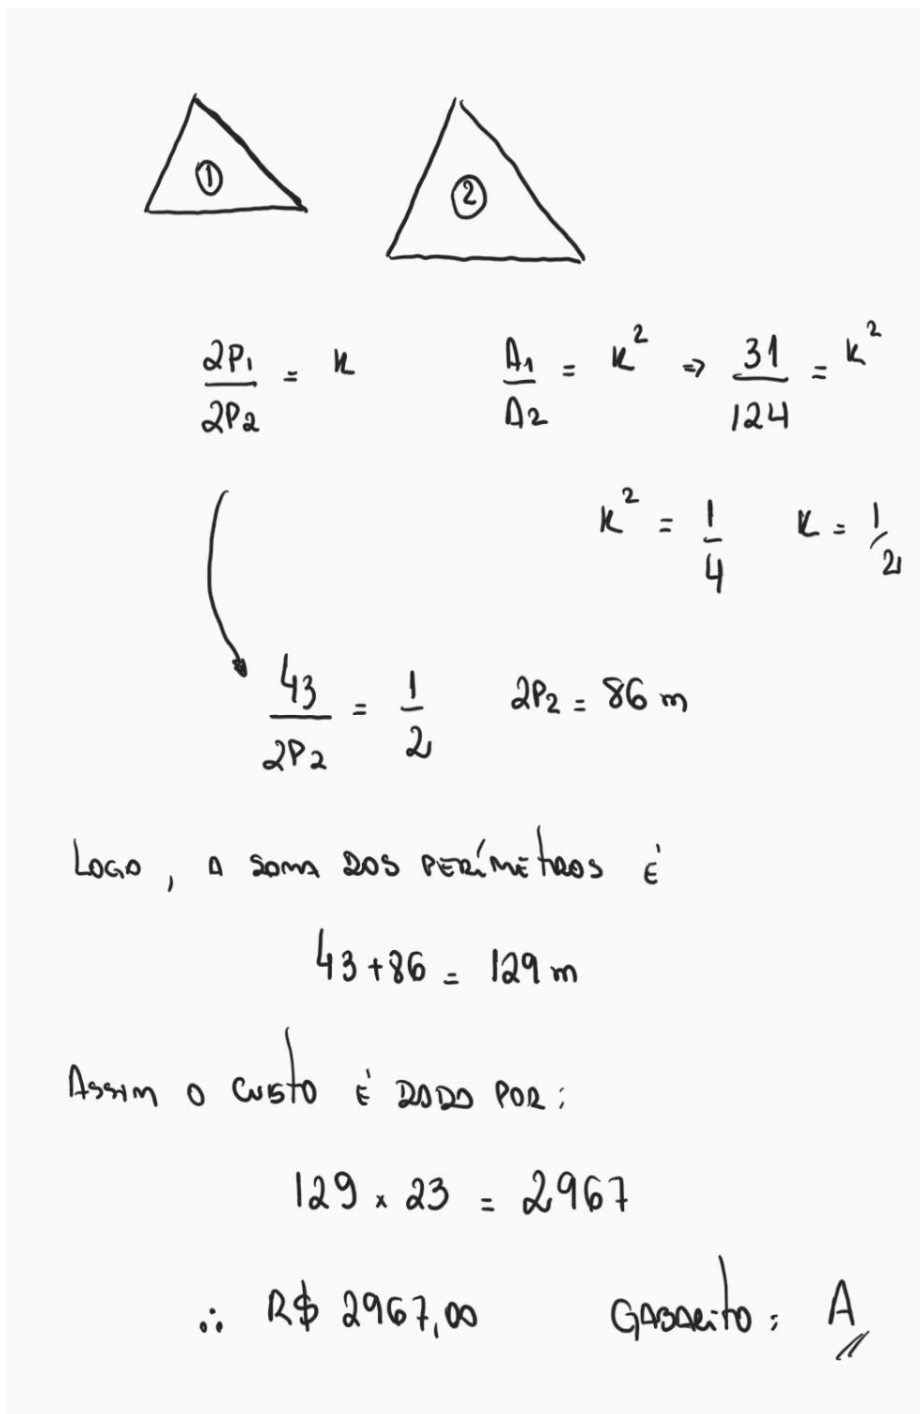 1 2
2P1/2P2 = K A1/A2 = K² ⇒ 31/124 = K²
K² = 1/4 K = 1/2
43/2P2 = 1/2 2P2 = 86 m
LOGO, A SOMA DOS PERÍMETROS É
43+86 = 129 m
ASSIM O CUSTO É DADO POR:
129 x 23 = 2967
∴ R$ 2967,00 GABARITO: A